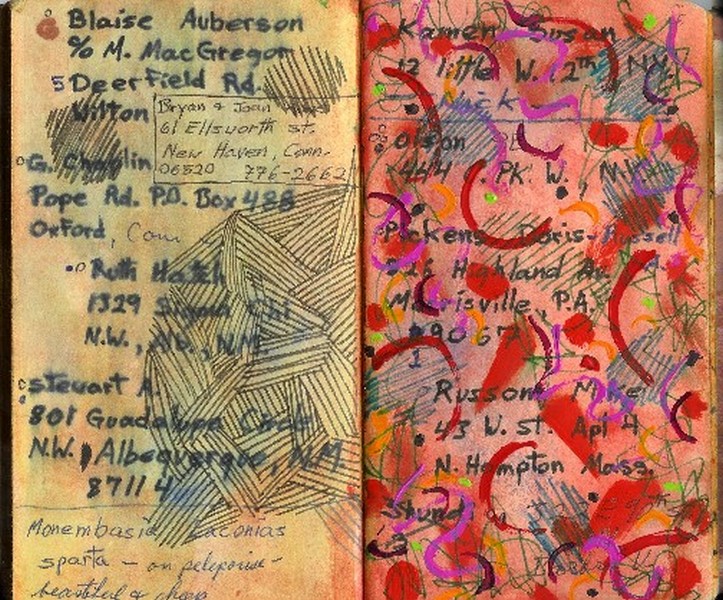 Blaise Auberson
% M. MacGregor
5 Deerfield Rd.
Wilton
Bryan & Joan
61 Ellsworth St.
New Haven, Conn.
06520 776-2662
G. Chaplin
Pope Rd. P.O. Box 488
Oxford,
Ruth Hatch
1329
N.W., Alb., N.M.
Stewart A.
801 Guadalupe Circle
N.W., Albequerque, N.M.
87114
Monembasia Laconias
sparta - on peleponise-
beautiful & cheap
Kamen Susan
12 little W. 12th NY.
Nick
Olson
444 . PK. W., N.Y.
Pickens Doris-Russell
Highland Av
Morrisville, P.A.
19067
Russom Mike
43 W. St. Apt 4
N. Hampton Mass.
Shund